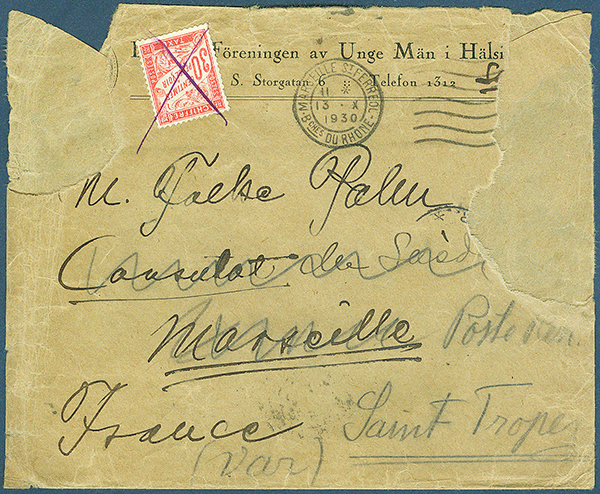 Föreningen av Unge Män i Hälsi
S. Storgatan 6 Telefon 1312
30
CENTIMES
CHIFFRE
TAXE
MARSEILLE ST FERREOL
11
13 - X
1930
BCHES DU RHONE
M. Folke Palm
Consulat de Suède
Marseille Poste
France Saint Tropez
(Var)